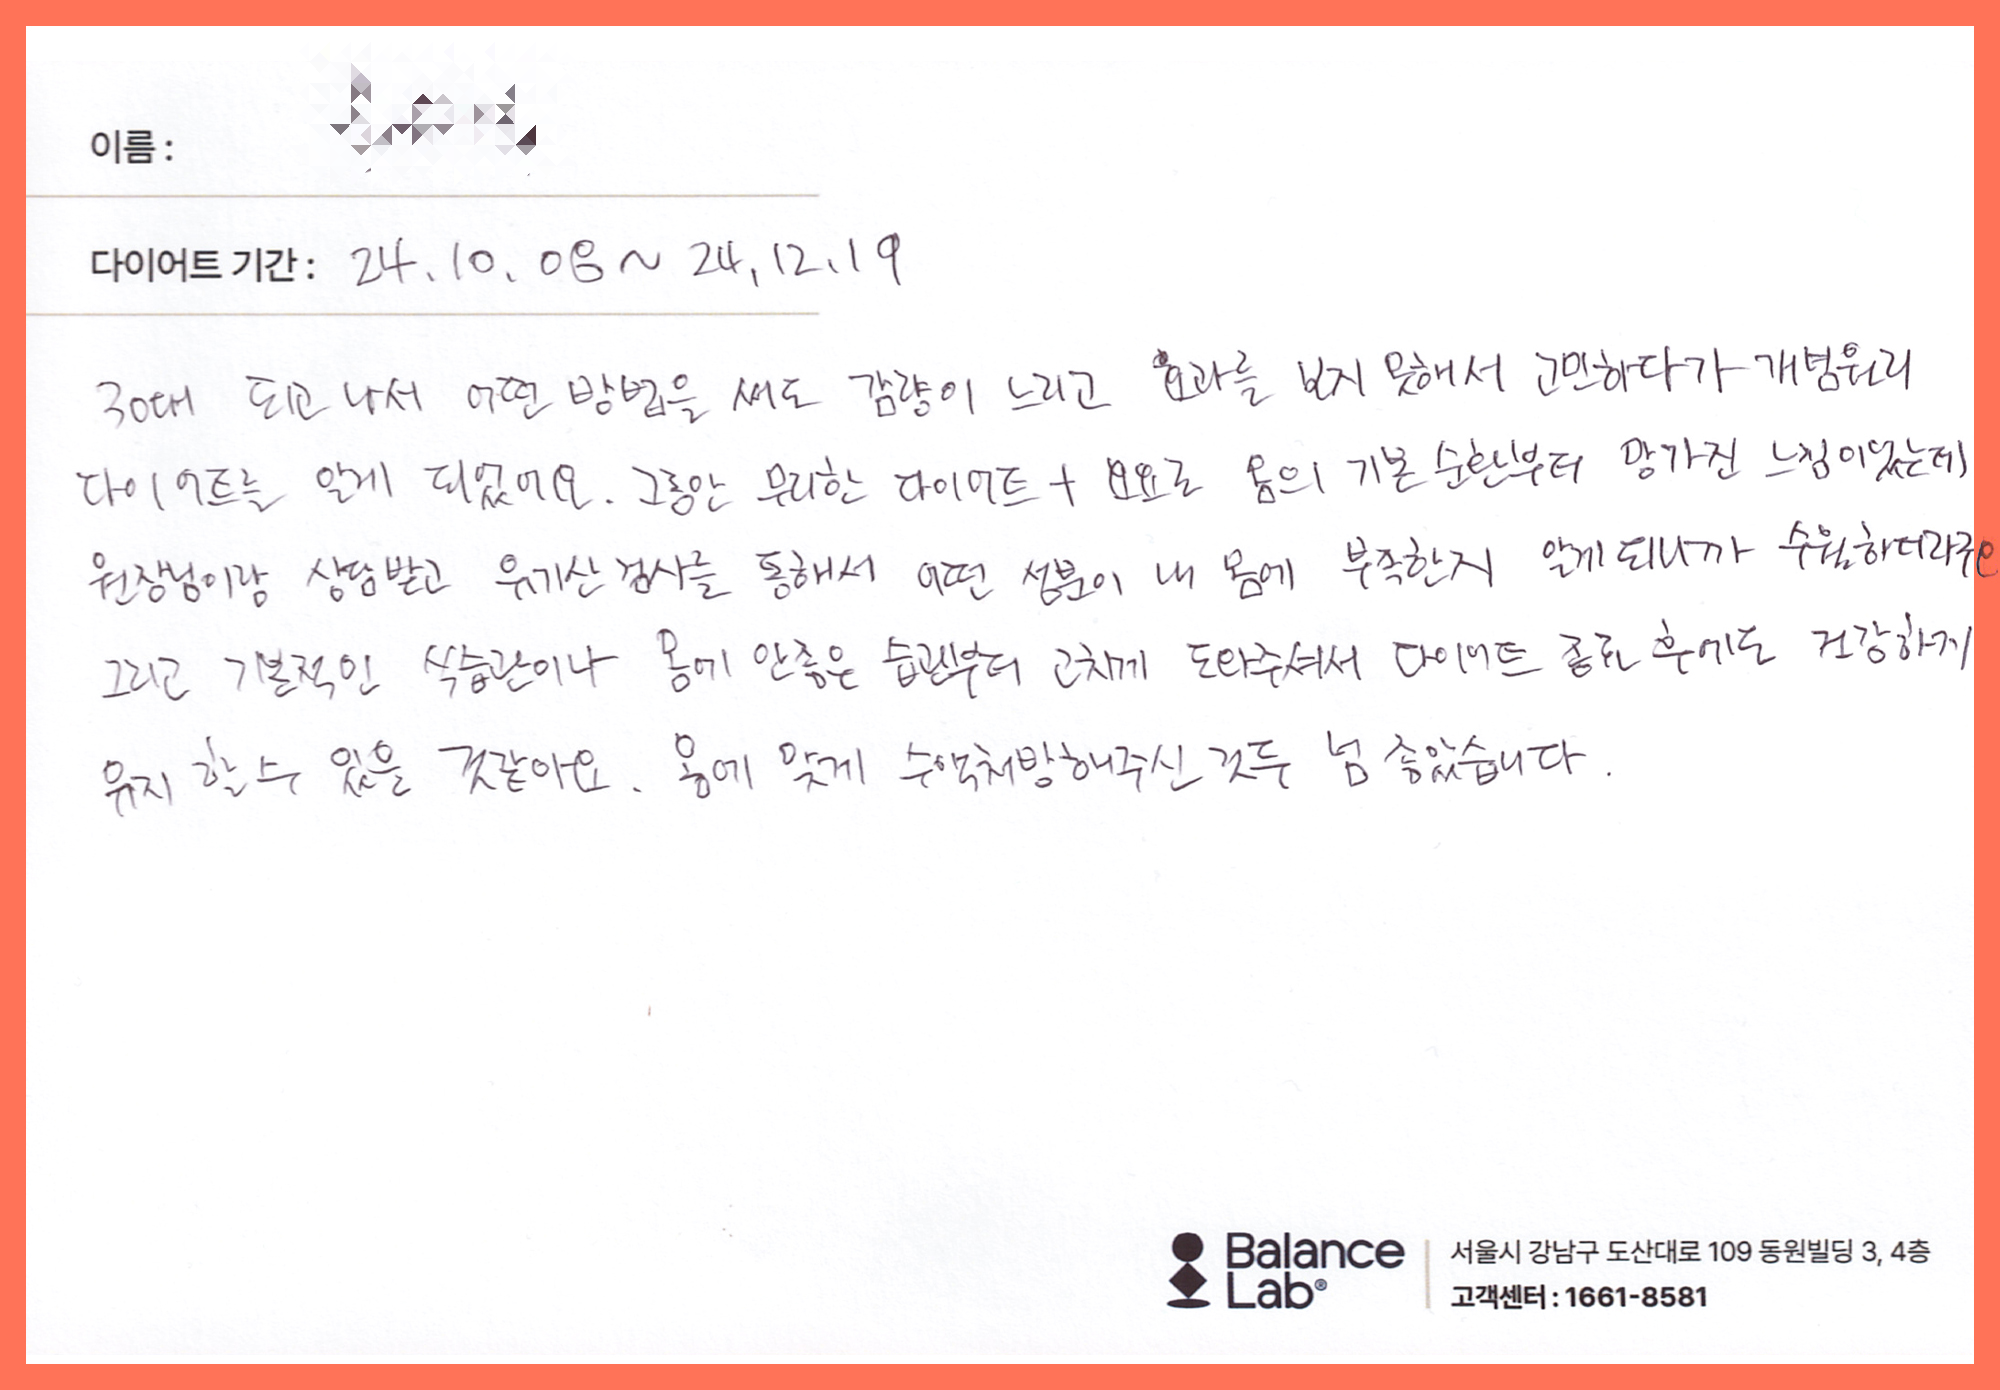 이름 :
다이어트 기간 : 24.10.08 ~ 24.12.19
30대 되고 나서 어떤 방법을 써도 감량이 느리고 효과를 보지 못해서 고민하다가 개범원리
다이어트를 알게 되었어요. 그동안 무리한 다이어트 + 요요로 몸의 기본 순환부터 망가진 느낌이었는데,
원장님이랑 상담받고 유기산 검사를 통해서 어떤 성분이 내 몸에 부족한지 알게되니까 수월하더라구요
그리고 기본적인 식습관이나 몸에 안좋은 습관부터 고치게 도와주셔서 다이어트 종료 후에도 건강하게
유지 할 수 있을 것같아요. 몸에 맞게 수액처방해주신 것두 넘 좋았습니다.
Balance
Lab®
서울시 강남구 도산대로 109 동원빌딩 3, 4층
고객센터 : 1661-8581